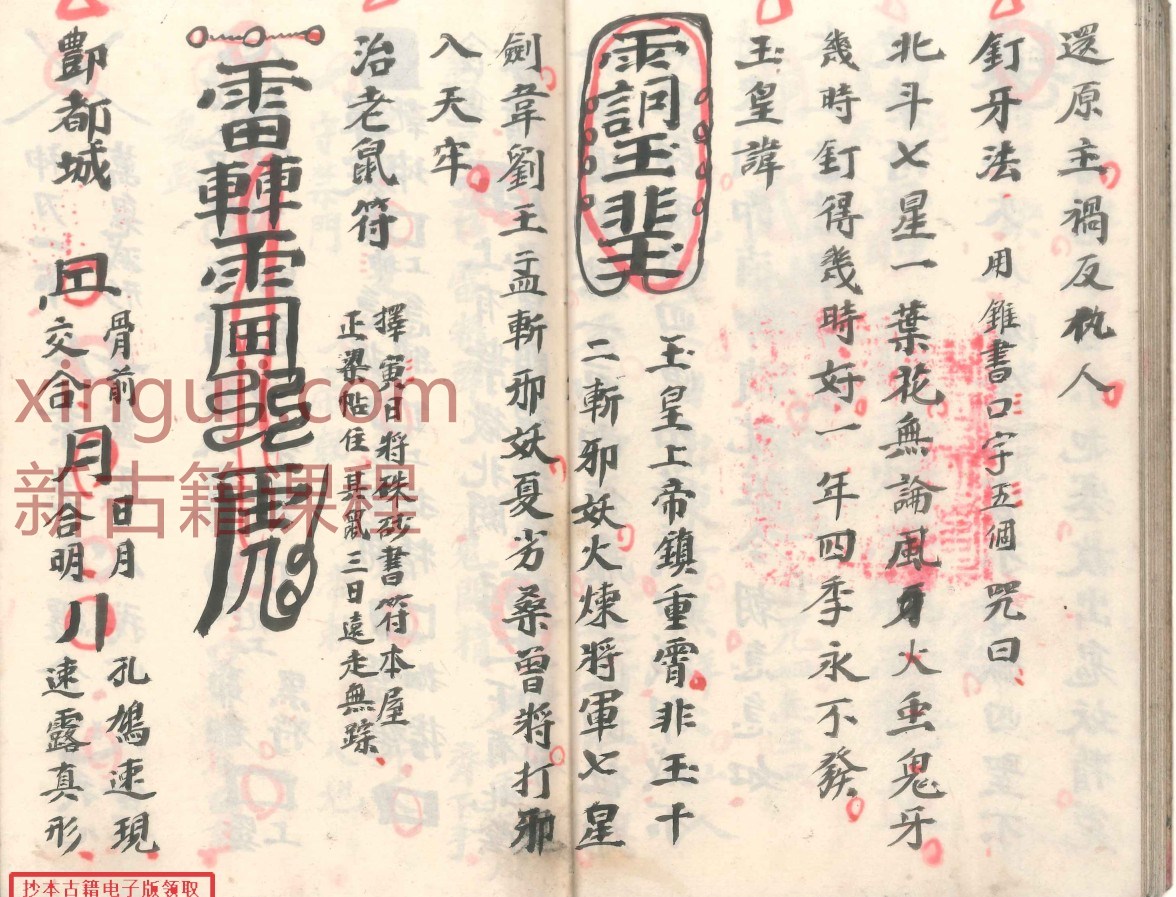 還原主禍反仇人
釘牙法 用錐書口字五個 咒曰
北斗七星一葉花無論風牙火虫鬼牙
幾時釘得幾時好一年四季永不發
玉皇諱
玉皇上帝鎮重霄非玉十
二斬邪妖火煉將軍七星
劍韋劉王孟斬邪妖夏劣桑曾將打邪
入天牢
治老鼠符
擇寅日將硃砂書符本屋
正梁帖住其鼠三日遠走無踪
酆都城
骨前 日月 孔鳩速現
交合 月 合明 速露真形
xinguji.com
新古籍课程
抄本古籍电子版领取